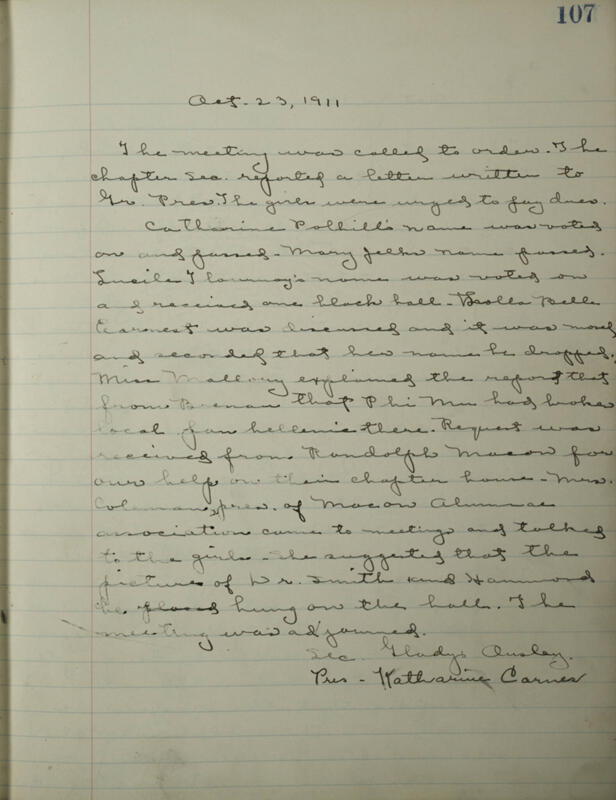 107
Oct. 23, 1911
The meeting was called to order. The
chapter Sec. reported a letter written to
Gr. Pres. The girls were urged to pay dues.
Catharine Polhill's name was voted
on and passed. Mary Jelks name passed.
Lucile name was voted on
and received one black ball. Belle
Earnest was discussed and it was moved
and seconded that her name be dropped.
Miss Mallory explained the report that
from Brenau that Phi Mu had broke
local pan hellenic there. Request was
received from Randolph Macon for
our help on their chapter house. Mrs.
Coleman, pres. of Macon Alumnae
association came to meeting and talked
to the girls. She suggested that the
picture of Dr. Smith and Hammond
be placed hung on the hall. The
meeting was adjourned.
Sec. Gladys Ansley.
Pres - Katharine Carnes